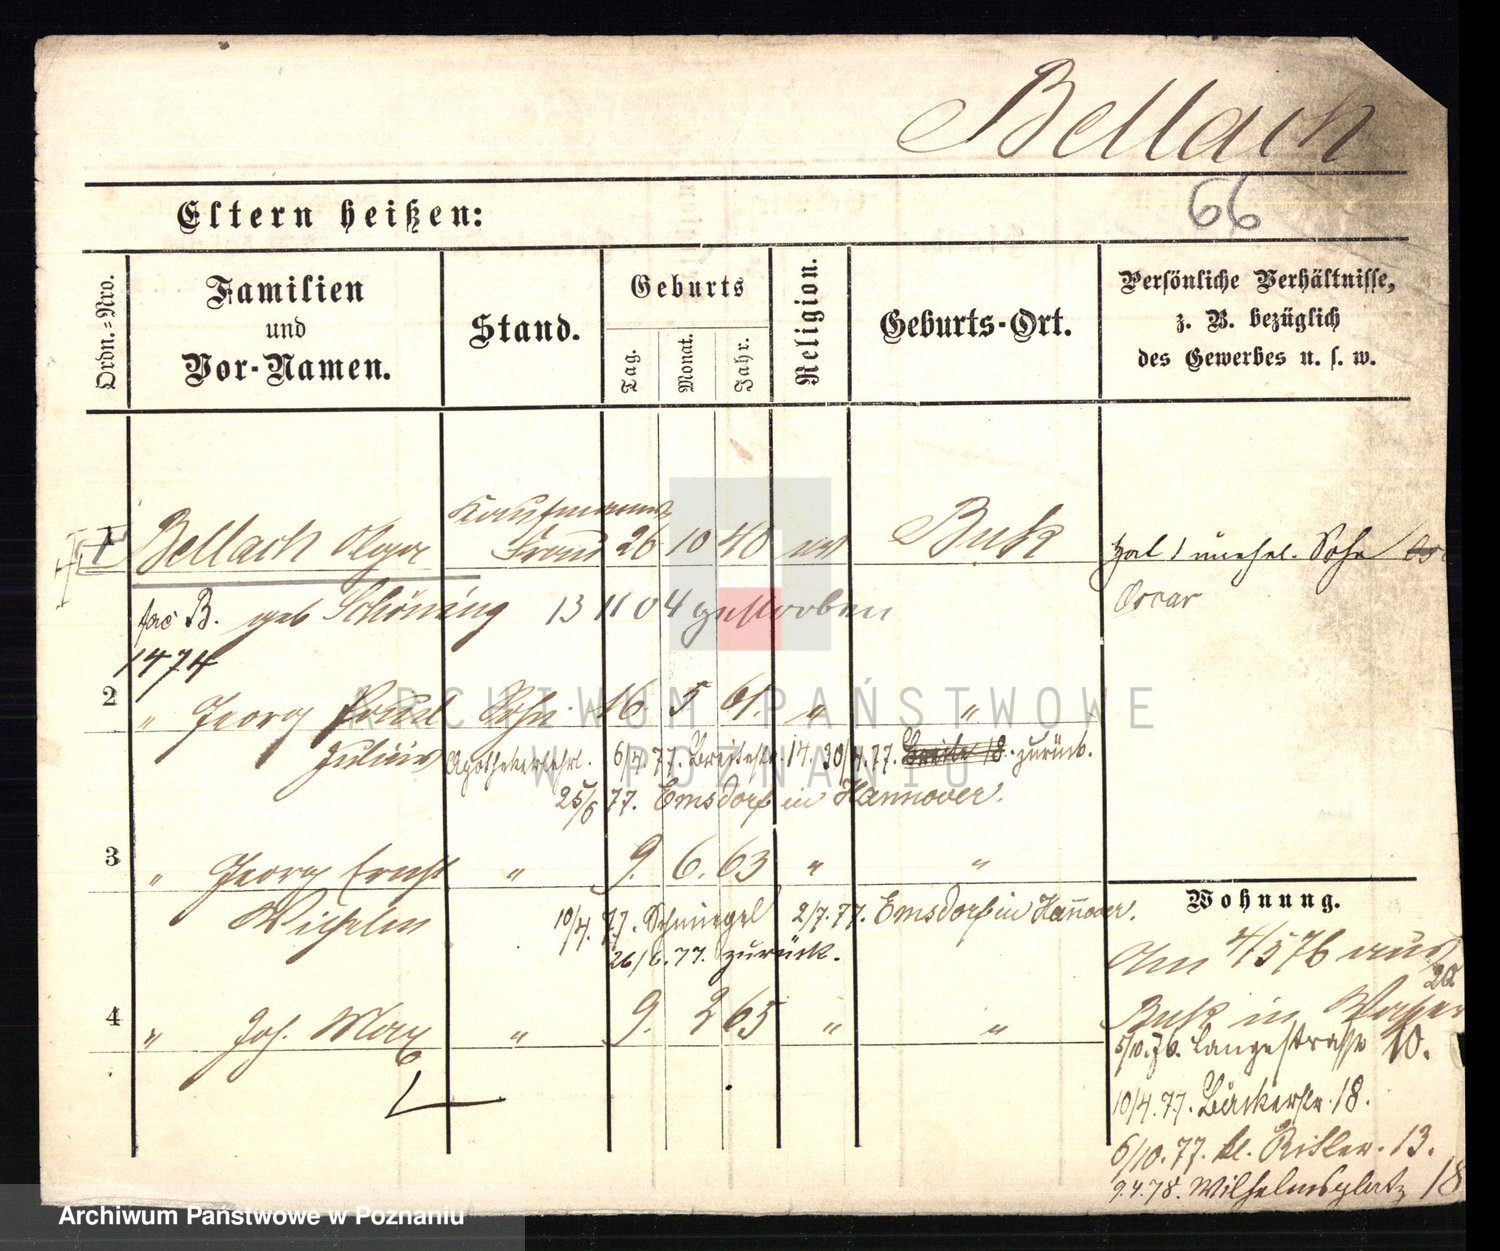 Bellach
66
Eltern heißen:
Ordn.=Nro.
Familien
und
Vor-Namen.
Stand.
Geburts
Tag.
Monat.
Jahr.
Religion.
Geburts-Ort.
Persönliche Verhältnisse,
z. B. bezüglich
des Gewerbes u. s. w.
Kaufmanns
1 Bellach Olga Frau 26 10 40 Buk
hat 1 unehel. Sohn
Oscar
B. geb Schöning 13 11 04 gestorben
1474
2 " Georg Sohn 16. 5 61. " "
Julius Apothekerlehrl. 6/4.77. Breitestr. 14. 30/4.77. Breite 18. zurück.
25/6 77. Emsdorf in Hannover.
3 " Georg Ernst " 9. 6. 63 " "
Wilhelm 10/4. 77. Schmiegel 2/7.77. Emsdorf in Hannover.
26/6.77. zurück.
4 " Joh. Max " 9. 2 65 " "
Wohnung.
Am 4/5 76 aus
Buk in
5/10.76. Langestrasse 10.
10/4.77. Bäckerstr. 18.
6/10.77. kl. Ritter. 13.
9.4.78. Wilhelmsplatz 18
ARCHIWUM PAŃSTWOWE
W POZNANIU
Archiwum Państwowe w Poznaniu